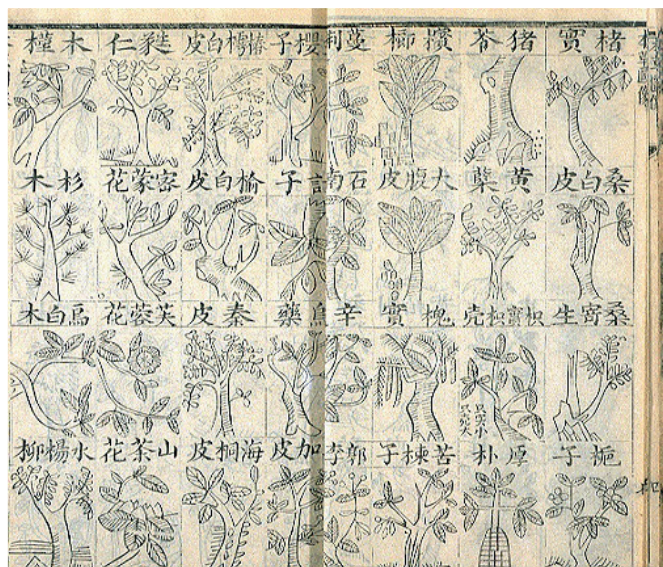 楮實
猪苓
檳榔
蔓荊
櫻子
椿樗白皮
蕤仁
木槿
桑白皮
黃蘗
大腹皮
石南
訶子
榆白皮
密蒙花
杉木
桑寄生
枳實枳壳
槐實
辛
烏藥
秦皮
芙蓉花
烏臼木
只实小
只壳大
梔子
厚朴
苦楝子
郁李
加皮
海桐皮
山茶花
水楊柳